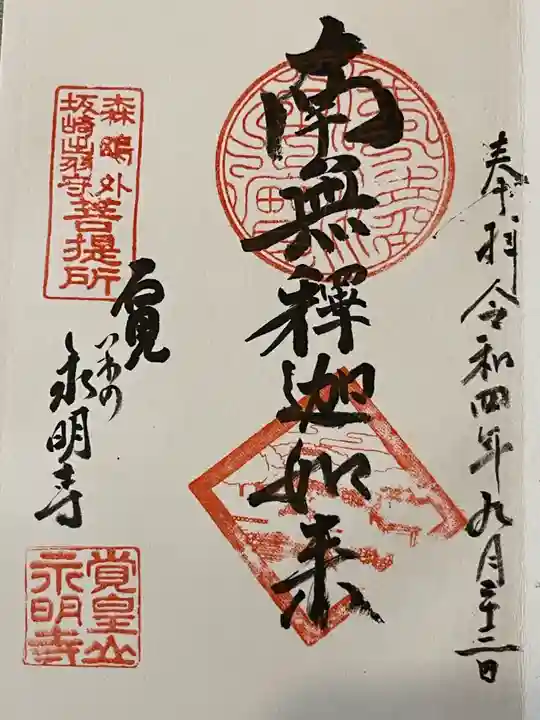 奉拝令和四年九月二十二日
南無釋迦如来
森鷗外
坂崎出羽守
菩提所
永明寺
覚皇山
永明寺